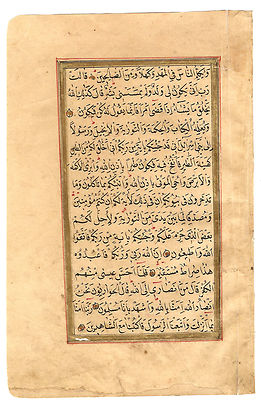 ويكلم الناس في المهد وكهلا ومن الصالحين قالت
رب انى يكون لي ولد ولم يمسسني بشر قال كذلك الله
يخلق ما يشاء اذا قضى امرا فانما يقول له كن فيكون
ويعلمه الكتاب والحكمة والتورية والانجيل ورسولا
الى بني اسرائيل اني قد جئتكم باية من ربكم اني اخلق لكم من الطين
كهيئة الطير فانفخ فيه فيكون طيرا باذن الله وابرئ الاكمه
والابرص واحي الموتى باذن الله وانبئكم بما تأكلون وما
تدخرون في بيوتكم ان في ذلك لاية لكم ان كنتم مؤمنين
ومصدقا لما بين يدي من التورية ولاحل لكم
بعض الذي حرم عليكم وجئتكم باية من ربكم فاتقوا
الله واطيعون ان الله ربي وربكم فاعبدوه
هذا صراط مستقيم فلما احس عيسى منهم
الكفر قال من انصاري الى الله قال الحواريون نحن
انصار الله امنا بالله واشهد بانا مسلمون ربنا امنا
بما انزلت واتبعنا الرسول فاكتبنا مع الشاهدين